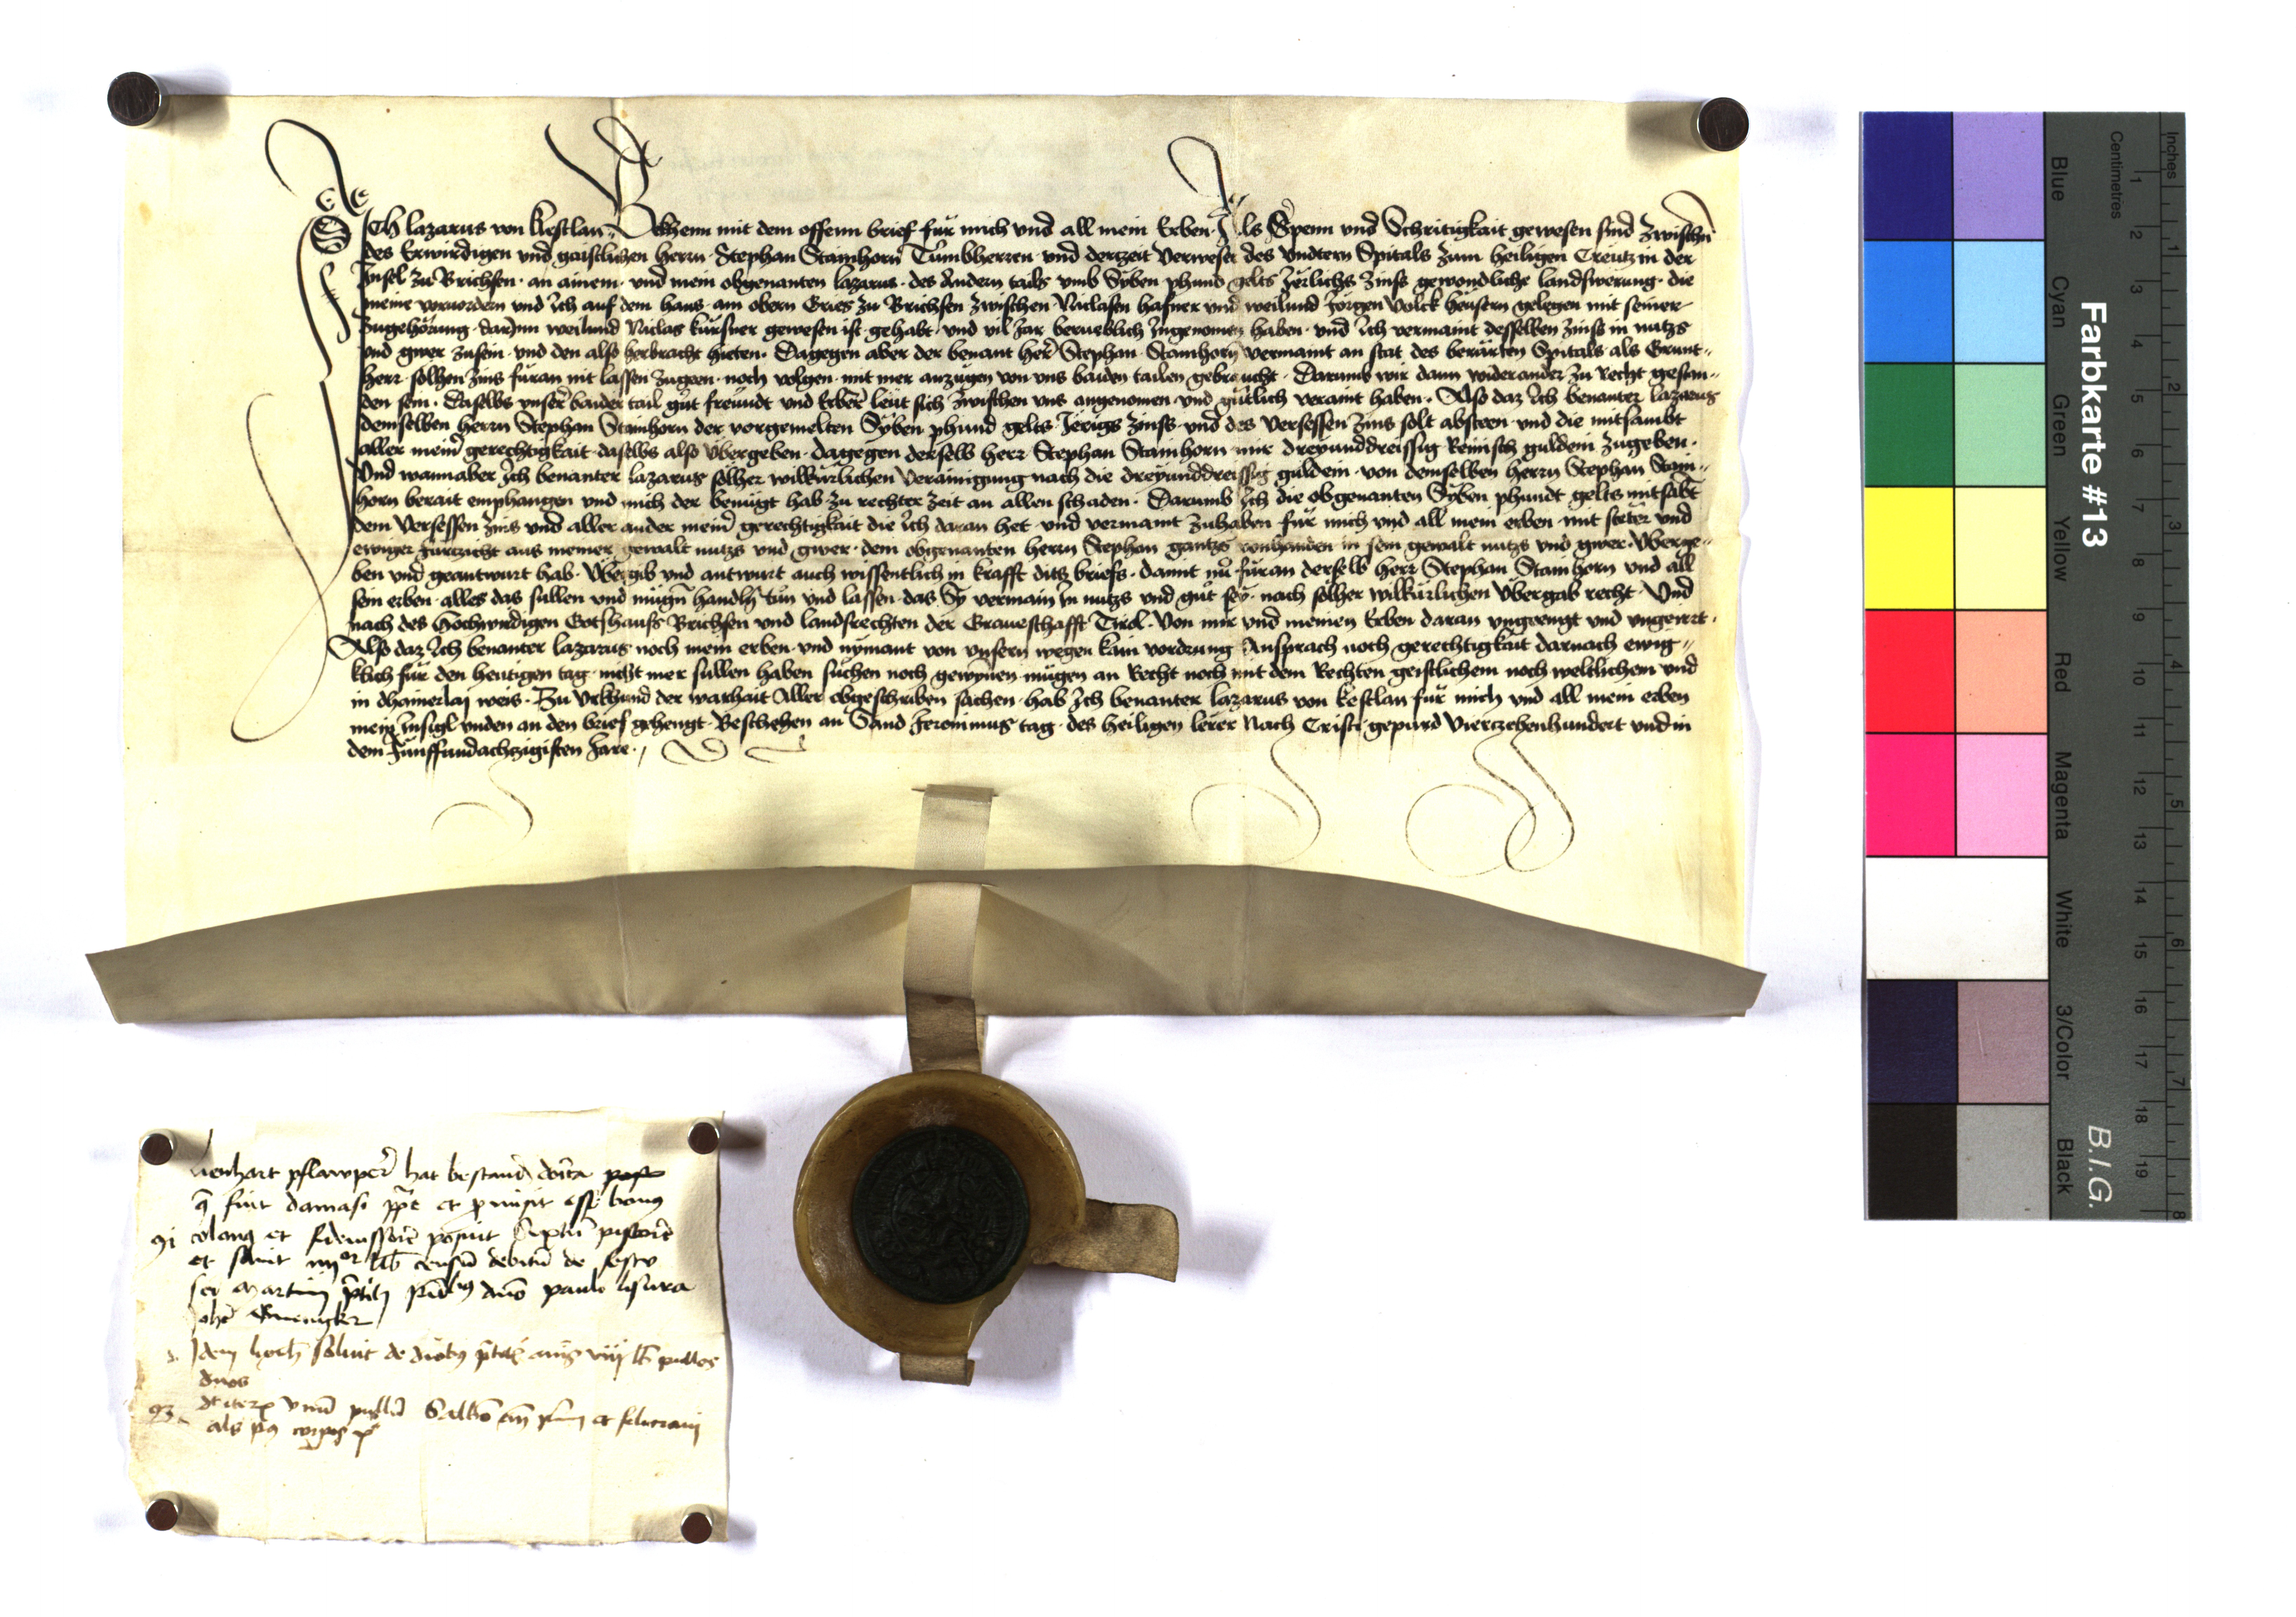 ICh lazarus von kestlan Bekhenn mit dem offenn brief für mich und all mein Erben Als Spenn und Schritigkait gewesen sind zwischn
des Erwirdigen und gaistlichen herrn Stephan Stamhorn Tumbherren und derzeit Verweser des Vndtern Spitals zum heiligen Creutz in der
Insel zu Brichsen an ainem und mein obgenanten lazarus des Andern tails vmb Syben phund gelts Jerlichs Zinss gewondliche landswerung die
meine voruordern und Ich auf dem haus am obern Gries zu Brichsen zwischen Niclasen hafner und weilund Jorgen Volck heusern gelegen mit seiner
zugehörung darInn weilund Niclas kürsner gewesen ist gehabt und vil Jar berueblich Ingenomen haben und Ich vermaint desselben Zinss in nutzs
und gwer zusein und den also herbracht hieten Dagegen aber der benant her Stephan Stamhorn vermaint an stat des berürten Spitals als Grunt
herr solhen Zins füran nit lassen zugeen noch volgen mit mer anzügen von vns baiden tailen gebraucht Darumb wir dann widerander zu recht gestan
den sein Daselbs vnser baider tail güt freundt und Erber leut sich zwischen vns angenomen und gütlich veraint haben Also daz Ich benanter lazarus
demselben herrn Stephan Stamhorn der vorgemelten Syben phund gelts Jerigs Zinss und des Versessen Zins solt absteen und die mitsambt
aller meinr gerechtigkait daselbs also übergeben dagegen derselb herr Stephan Stamhorn mir dreyunddreissig Reinisch guldein zugeben
Und wannaber Ich benanter lazarus solher wilkürlichen Verainigung nach die dreyunddreissig guldein von demselben herrn Stephan Stam
horn berait emphangen und mich der benügt hab zu rechter zeit an allen schaden Darumb Ich die obgenanten Syben phundt gelts mitsabt
dem Versessen Zins und aller ander meinr gerechtigkait die Ich daran het und vermaint zuhaben für mich und all mein erben mit steter und
ewiger furzicht aus meiner gewalt nutzs und gwer dem obgenanten herrn Stephan gantzs vonhanden in sein gewalt nutzs und gwer Überge
ben und geantwurt hab Übergib und antwurt auch wissentlich in krafft ditz briefs damit nu füran derselb herr Stephan Stamhorn und all
sein erben alles das sullen und mügn handln tün und lassen das Sy vermain In nutzs und gut sey nach solher wilkürlichen Übergab recht Und
nach des Hochwirdigen Gotshauss Brichsen und landsrechten der Graueschafft Tirol Von mir und meinen Erben daran ungeengt und ungeirrt
Also daz Ich benanter lazarus noch mein erben und nymant von vnsern wegen kain vordrung Ansprach noch gerechtigkait darnach ewig
klich für den heutigen tag nicht mer sullen haben suchen noch gewynnen mügen an Recht noch mit dem Rechten geistlichem noch weltlichem und
in dhainerlaj weis Zu Urkhund der warhait Aller obgeschriben sachen hab Ich benanter lazarus von kestlan für mich und all mein erben
mein Insigl vnden an den brief gehengt Beschehen an Sand Jeronimus tag des heiligen lerer Nach Cristi gepurd Viertzehenhundert und in
dem Fünffundachtzigisten Jare
lienhart pflawper hat bestand
fuit damasi et promisit esse bonus
colanus et fideiussore posuit pistore
et soluit iiijor lib censum debitum de festo
sci Martinj paulo
Idem soluit de pullos
duos
vnum pullum
Farbkarte #13
B.I.G.
Inches
Centimetres
1 2 3 4 5 6 7 8 9 10 11 12 13 14 15 16 17 18 19
1 2 3 4 5 6 7 8
Blue Cyan Green Yellow Red Magenta White 3/Color Black